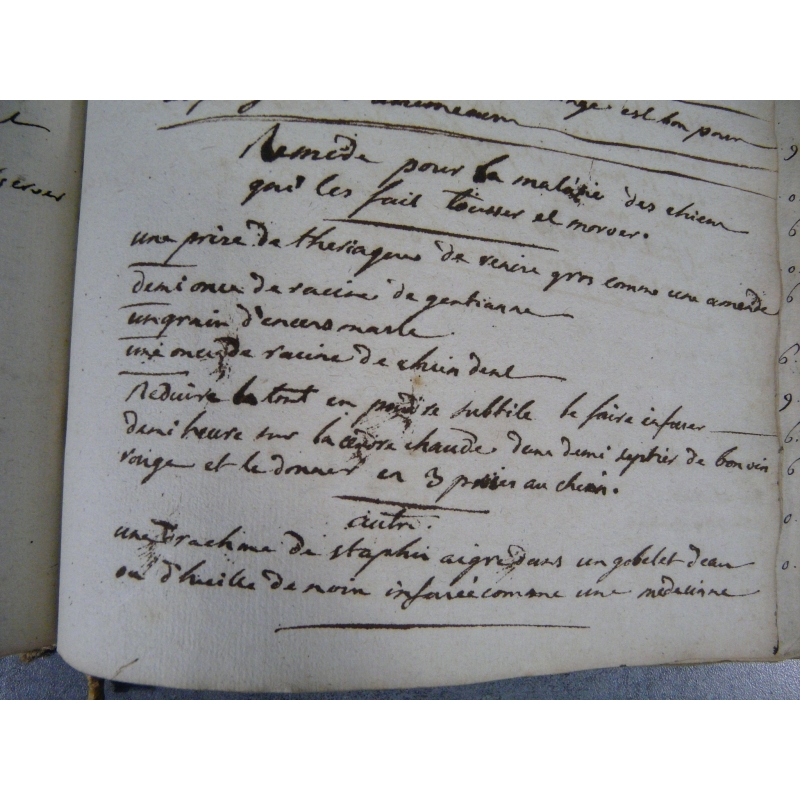 est bon pour
Remede pour la maladie des chiens
qui les fait tousser et morver.
une prise de theriaque de venise gros comme une amende
demi once de racine de gentianne
un grain d'encens marle
une once de racine de chien dent
Reduire le tout en poudre subtile le faire infuser
demi heure sur la cendre chaude dans demi septier de bon vin
rouge et le donner en 3 prises au chien.
autre.
une drachme de staphis aigre dans un gobelet d'eau
ou d'huille de noix infusée comme une medecinne
server